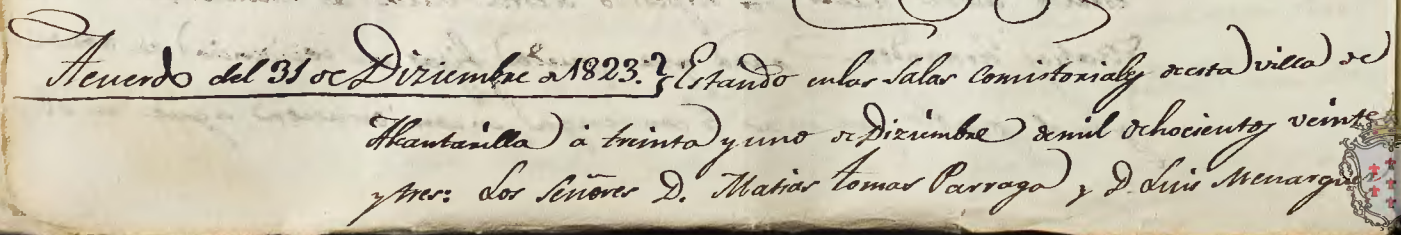 Acuerdo del 31 de Diziembre de 1823. } Estando en las Salas Comistoriales de esta villa de
Alcantarilla á treinta y uno de Diziembre de mil ochocientos veinte
y tres: Los Señores D. Matias tomas Parraga, y D. Luis Menarguez